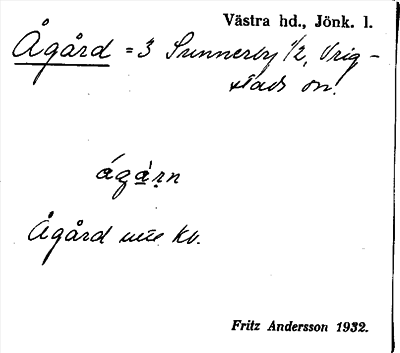 Västra hd., Jönk. l.
Ågård = 3 Sunnerby 1/2, Vrig-
stads sn.
ágà̱ṛn
Ågård
kv.
Fritz Andersson 1932.